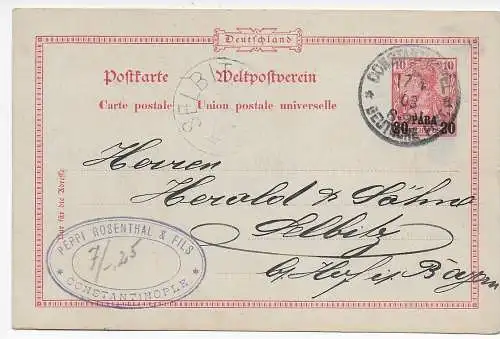 Deutschland
Postkarte Weltpostverein
Carte postale Union postale universelle
SELBIT
CONSTANTINOPEL
17
03
DEUTSCHE
10 10
PARA
20 20
Nur für die Adresse
Herren
Herold & Söhne
Selbitz
b/Hof in Bayern
PEPPI ROSENTHAL & FILS
7/-.25
* CONSTANTINOPLE *